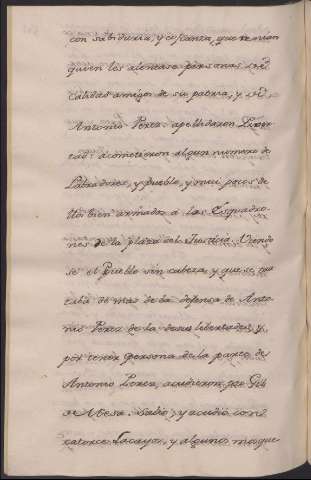 con sabiduria, y confianza, que tenian
quien les alentase personas de
calidad amigos de su patria, y de
Antonio Perez: apellidaron Liver-
tad: acometieron algun numero de
Labradores, y pueblo, y mui pocos de
ellos bien armados á los Esquadro-
nes de la plaza del Justicia. Viendo
se el Pueblo sin cabeza, y que se tra-
taba de mas de la defensa de Anto-
nio Perez de la de sus libertades, y
por tener persona de la parte de
Antonio Perez, acudieron por Gil
de Mesa. Salió, y acudió con
catorce Lacayos, y algunos mosque